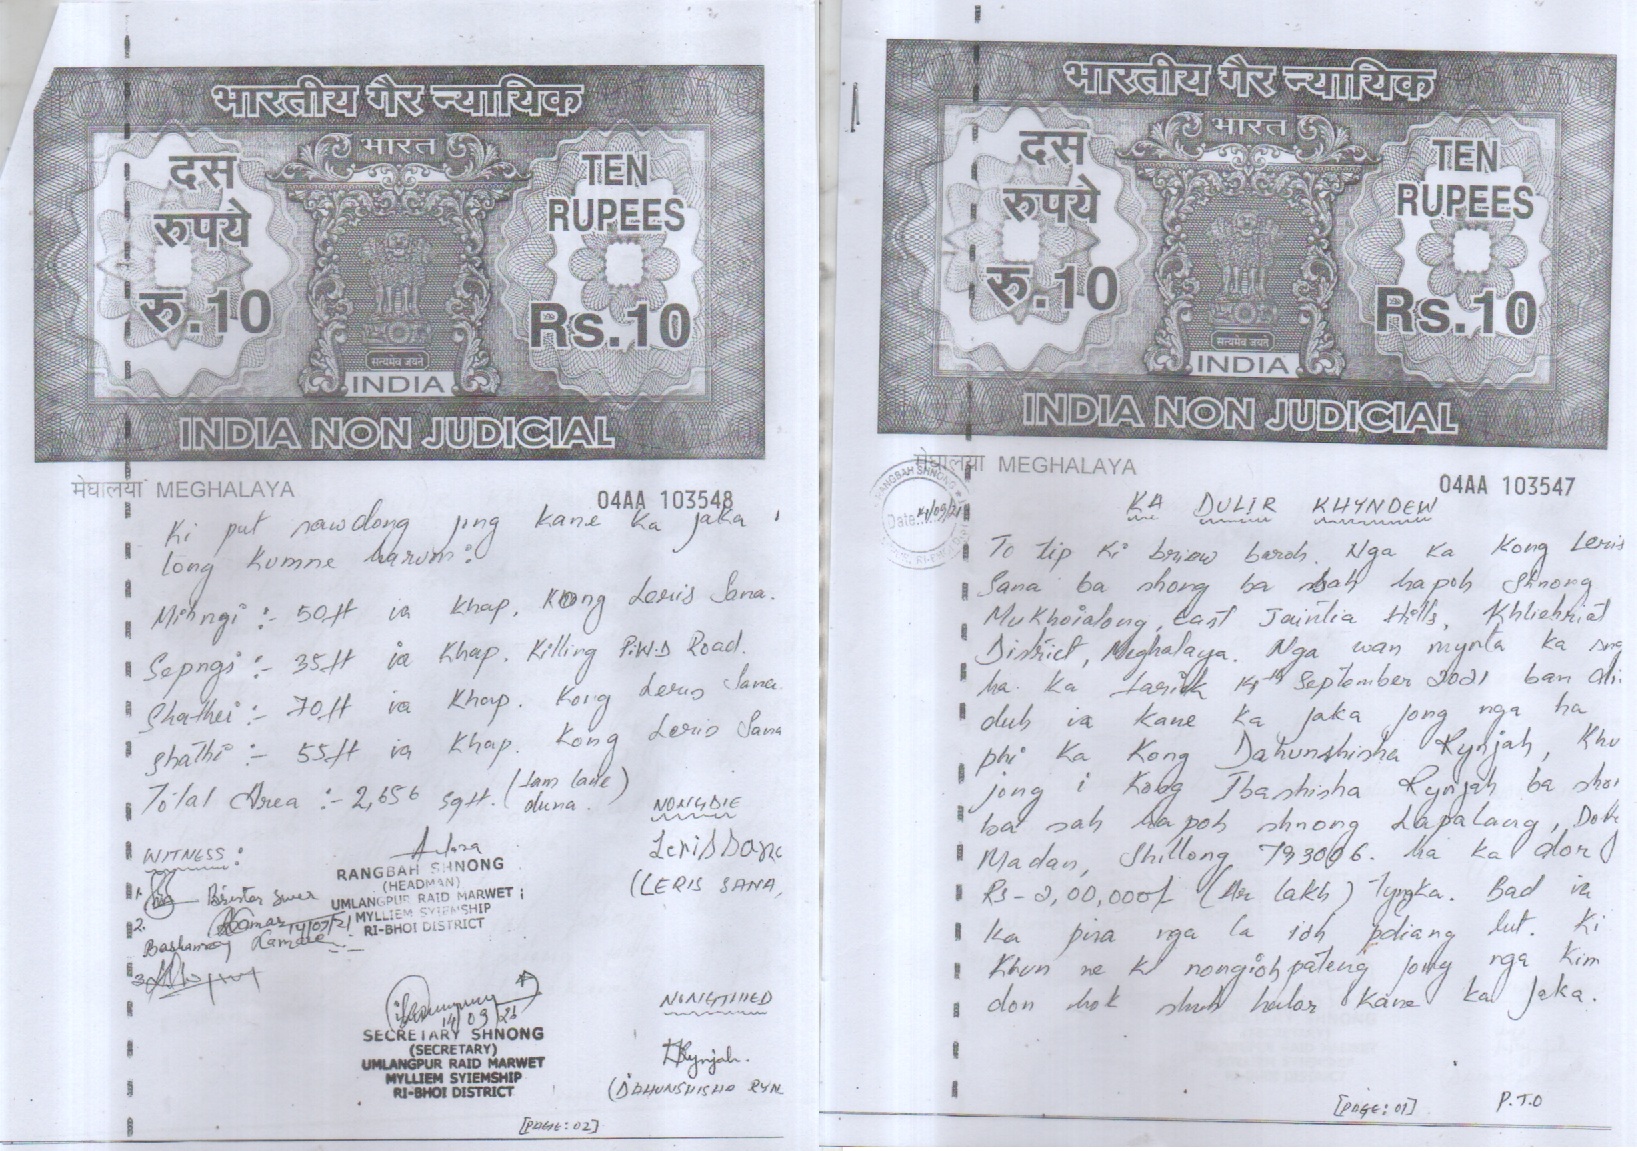 भारतीय गैर न्यायिक
भारत
दस
रुपये
रु.10
TEN
RUPEES
Rs.10
सत्यमेव जयते
INDIA
INDIA NON JUDICIAL
मेघालया MEGHALAYA
04AA 103548
Ki put sawdong jong kane ka jaka
long kumne harum:
Mihngi :- 50ft ia khap. Kong Leris Sana.
Sepngi :- 35ft ia khap. Killing P.W.D Road.
Shathei :- 70ft ia khap. Kong Leris Sana
Shathi :- 55ft ia khap. Kong Leris Sana
Total Area :- 2,656 sqft. (lam lane duna.)
NONGDIE
WITNESS:
Leris Sana
(LERIS SANA,
RANGBAH SHNONG
(HEADMAN)
UMLANGPUR RAID MARWET
MYLLIEM SYIEMSHIP
RI-BHOI DISTRICT
1.
2.
3.
14/09/21
SECRETARY SHNONG
(SECRETARY)
UMLANGPUR RAID MARWET
MYLLIEM SYIEMSHIP
RI-BHOI DISTRICT
NONGTHIED
Rynjah.
(DAHUNSHISHA RYN
[PAGE: 02]
भारतीय गैर न्यायिक
भारत
दस
रुपये
रु.10
TEN
RUPEES
Rs.10
सत्यमेव जयते
INDIA
INDIA NON JUDICIAL
मेघालया MEGHALAYA
04AA 103547
RANGBAH SHNONG
Date
KA DULIR KHYNDEW
To tip ki briew baroh. Nga ka Kong Leris
Sana ba shong ba sah hapoh Shnong
Mukhaialong, East Jaintia Hills, Khliehriat
District, Meghalaya. Nga wan mynta ka sng
ha ka tarik 14th September 2021 ban die
duh ia kane ka jaka jong nga ha
phi ka Kong Dahunshisha Rynjah, Khu
jong i Kong Ibashisha Rynjah ba sho
ba sah hapoh shnong Lapalang,
Madan, Shillong, 793006. ha ka dor
Rs-2,00,000/- (Ar lakh) Tyngka. Bad ia
ka pisa nga la ioh pdiang lut. Ki
khun ne ki nongioh pateng jong nga kim
don hok shuh halor kane ka jaka.
[PAGE: 01]
P.T.O